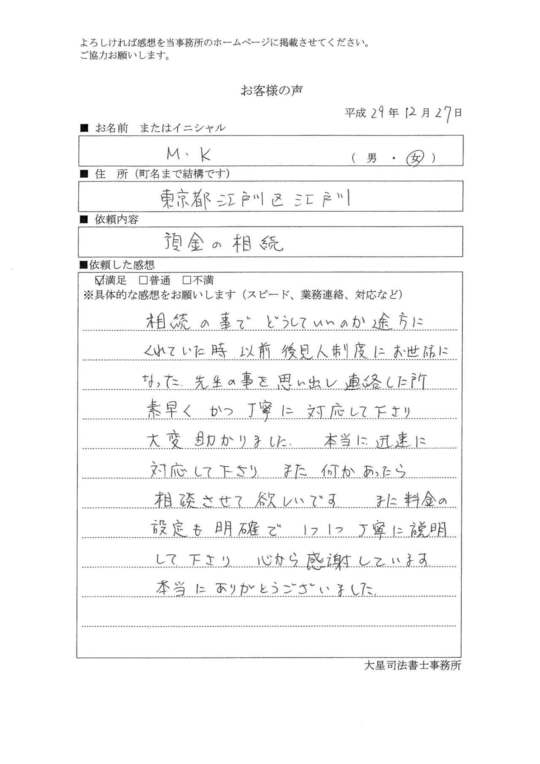 よろしければ感想を当事務所のホームページに掲載させてください。
ご協力お願いします。
お客様の声
平成 29 年 12 月 27 日
■ お名前 またはイニシャル
M・K （ 男 ・ 女 ）
■ 住 所（町名まで結構です）
東京都江戸川区江戸川
■ 依頼内容
預金の相続
■依頼した感想
☑満足 □普通 □不満
※具体的な感想をお願いします（スピード、業務連絡、対応など）
相続の事で どうしていいのか途方に
くれていた時 以前後見人制度にお世話に
なった 先生の事を思い出し連絡した所
素早く かつ丁寧に対応して下さり
大変助かりました. 本当に迅速に
対応して下さり また何かあったら
相談させて欲しいです また料金の
設定も明確で 1つ1つ丁寧に説明
して下さり 心から感謝しています
本当にありがとうございました.
大星司法書士事務所